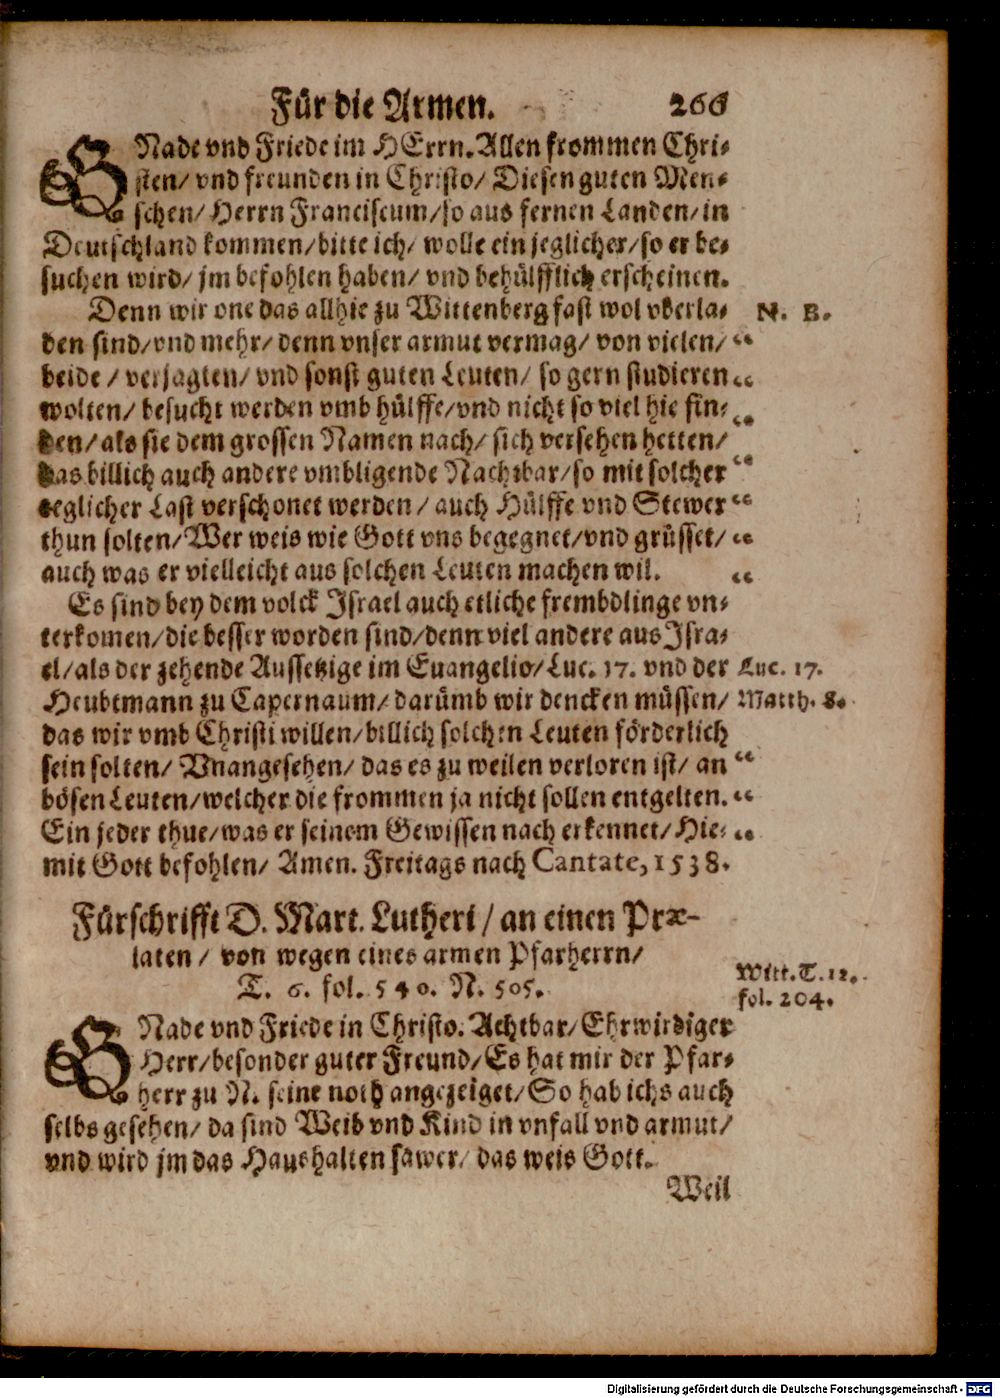 Für die Armen. 266
GNade vnd Friede im HErrn. Allen frommen Chri-
sten/ vnd freunden in Christo/ Diesen guten Men-
schen/ Herrn Franciscum/ so aus fernen Landen/ in
Deutschland kommen/ bitte ich/ wolle ein jeglicher/ so er be-
suchen wird/ jm befohlen haben/ vnd behülfflich erscheinen.
Denn wir one das allhie zu Wittenberg fast wol vberla- N. B.
den sind/ vnd mehr/ denn vnser armut vermag/ von vielen/ “
beide / verjagten/ vnd sonst guten Leuten/ so gern studieren “
wolten/ besucht werden vmb hülffe/ vnd nicht so viel hie fin- “
den/ als sie dem grossen Namen nach/ sich versehen hetten/
das billich auch andere vmbligende Nachtbar/ so mit solcher “
teglicher Last verschonet werden/ auch Hülffe vnd Stewer “
thun solten/ Wer weis wie Gott vns begegnet/ vnd grüsset/ “
auch was er vielleicht aus solchen Leuten machen wil. “
Es sind bey dem volck Israel auch etliche frembdlinge vn-
terkomen/ die besser worden sind/ denn viel andere aus Isra-
el/ als der zehende Aussetzige im Euangelio/ Luc. 17. vnd der Luc. 17.
Heubtmann zu Capernaum/ darümb wir dencken müssen/ Matth. 8.
das wir vmb Christi willen/ billich solchen Leuten förderlich
sein solten/ Vnangesehen/ das es zu weilen verloren ist/ an “
bösen Leuten/ welcher die frommen ja nicht sollen entgelten. “
Ein jeder thue/ was er seinem Gewissen nach erkennet/ Hie- “
mit Gott befohlen/ Amen. Freitags nach Cantate, 1538.
Fürschrifft D. Mart. Lutheri / an einen Præ-
laten / von wegen eines armen Pfarherrn/
T. 6. fol. 540. N. 505. Witt. T. 12.
fol. 204.
GNade vnd Friede in Christo. Achtbar/ Ehrwirdiger
Herr/ besonder guter Freund/ Es hat mir der Pfar-
herr zu N. seine noth angezeiget/ So hab ichs auch
selbs gesehen/ da sind Weib vnd Kind in vnfall vnd armut/
vnd wird jm das Haushalten sawer/ das weis Gott.
Weil
Digitalisierung gefördert durch die Deutsche Forschungsgemeinschaft - DFG